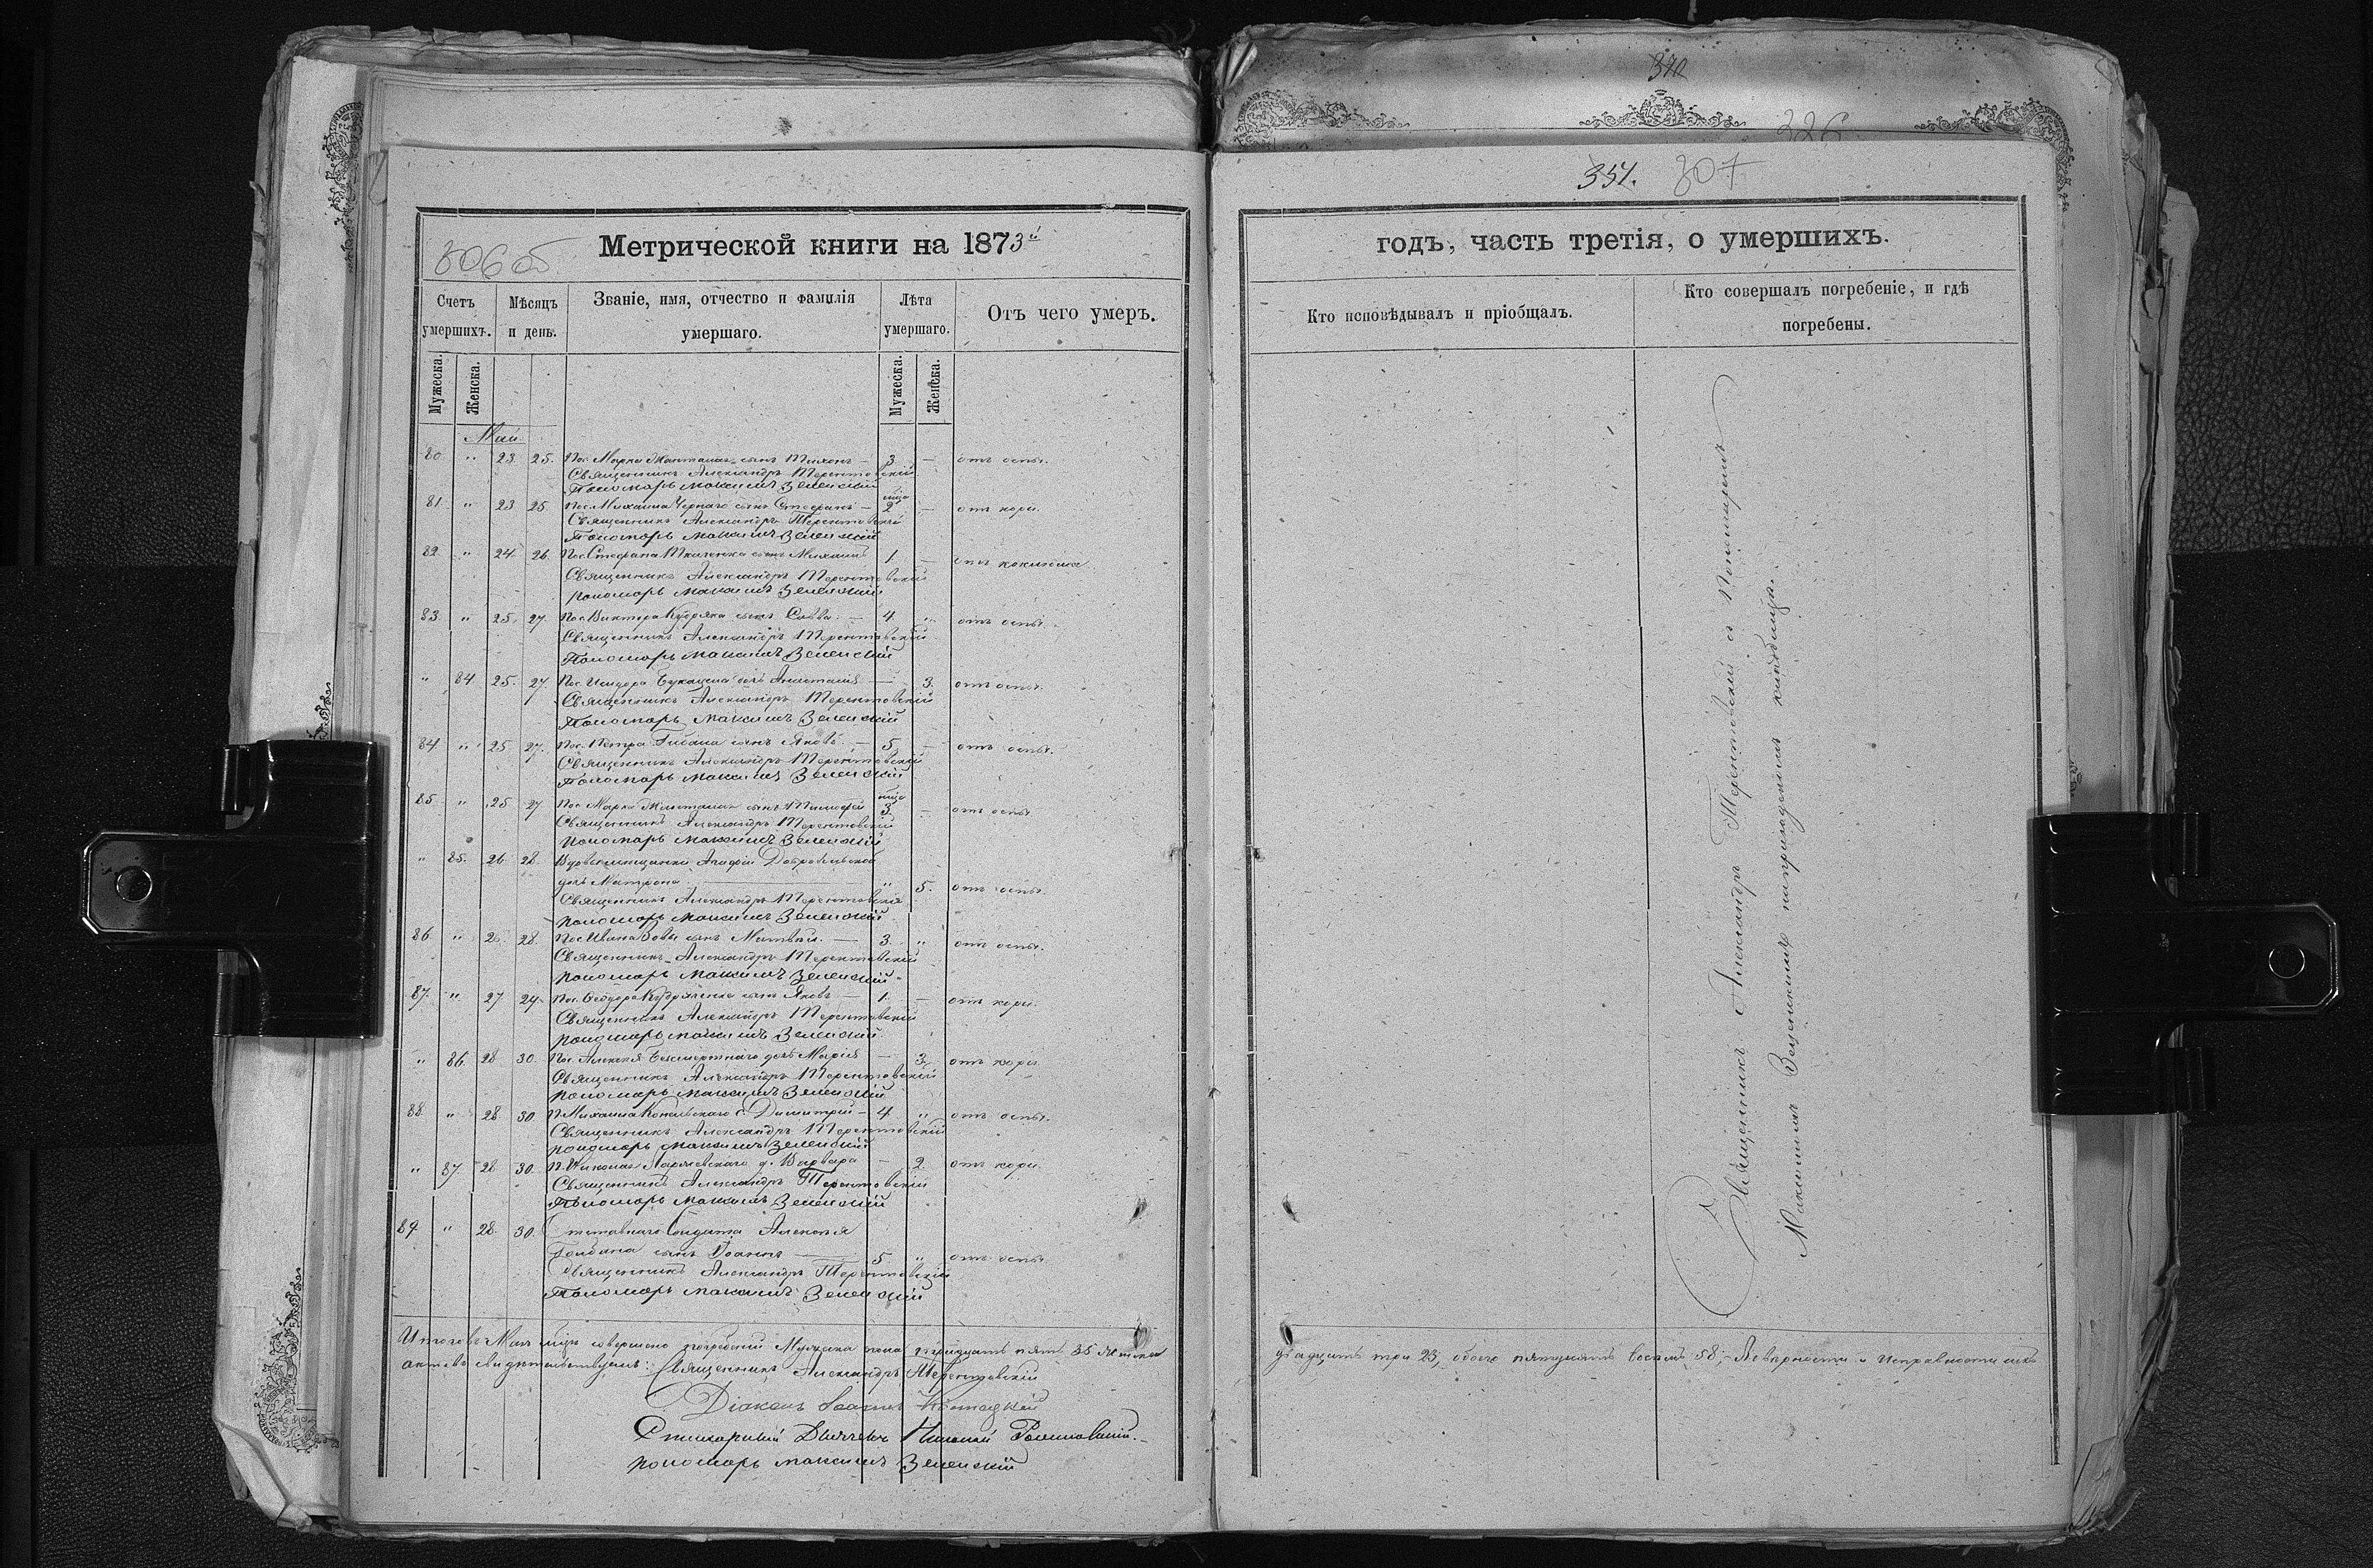 370
226
351. 307
306 об
Метрической книги на 1873й
годъ, часть третія, о умершихъ.
Счетъ умершихъ.
Мѣсяцъ и день.
Званіе, имя, отчество и фамилія умершаго.
Лѣта умершаго.
Отъ чего умеръ.
Кто исповѣдывалъ и пріобщалъ.
Кто совершалъ погребеніе, и гдѣ погребены.
Мужеска.
Женска.
Мужеска.
Женска.
Май
80 " 23 25. Пос. Марка сынъ Тихонъ — 3 — отъ оспы.
Священникъ Александръ Терентовскій
Пономарь Максимъ Зеленскій
81 " 23 25 Пос. Михаила Чернаго сынъ Стефанъ — 2 — отъ кори.
Священникъ Александръ Терентовскій
Пономарь Максимъ Зеленскій
82 " 24 26 Пос. Стефана Ткаченка сынъ Михаилъ 1. — отъ коклюша
Священникъ Александръ Терентовскій
Пономарь Максимъ Зеленскій
83 " 25 27 Пос. Виктора Кудряка сынъ Савва — 4. " отъ оспы.
Священникъ Александръ Терентовскій
Пономарь Максимъ Зеленскій
" 84 25. 27. Пос. Исидора дочь Анастасія — 3. отъ оспы.
Священникъ Александръ Терентовскій
Пономарь Максимъ Зеленскій
84 " 25 27. Пос. Петра сынъ Яковъ — 5 — отъ оспы.
Священникъ Александръ Терентовскій
Пономарь Максимъ Зеленскій
85 " 25 27 Пос. Марка сынъ Тимофей 3 — отъ оспы
Священникъ Александръ Терентовскій
Пономарь Максимъ Зеленскій
" 85. 26 28 Вдовы мещанки Агафіи Добровольской
дочь Матрона — " 5. отъ оспы.
Священникъ Александръ Терентовскій
Пономарь Максимъ Зеленскій
86 " 26 28 Пос. Ивана сынъ Матвѣй. — 3. " отъ оспы.
Священникъ Александръ Терентовскій
Пономарь Максимъ Зеленскій
87. " 27 29 Пос. Ѳеодора сынъ Яковъ — 1. — отъ кори.
Священникъ Александръ Терентовскій
Пономарь Максимъ Зеленскій
" 86 28 30. Пос. Алексѣя Безсмертнаго дочь Марія — 3. отъ кори
Священникъ Александръ Терентовскій
Пономарь Максимъ Зеленскій
88 " 28 30 П. Михаила с. Димитрій — 4 " отъ оспы.
Священникъ Александръ Терентовскій
Пономарь Максимъ Зеленскій
" 87. 28 30. П. Николая д. Варвара — 2. отъ кори.
Священникъ Александръ Терентовскій
Пономарь Максимъ Зеленскій
89 " 28 30. Отставнаго Солдата Алексѣя
сынъ Іоаннъ — 5 " отъ оспы
Священникъ Александръ Терентовскій
Пономарь Максимъ Зеленскій
Священникъ Александръ Терентовскій съ Пономаремъ
Максимомъ Зеленскимъ на приходскомъ кладбищѣ.
Итого въ Маѣ мѣсяцѣ совершено погребеній Мужеска пола тридцать пять 35 Женска
двадцать три 23, обоего пятдесятъ восемь 58; Вѣрности и исправности сихъ
актовъ свидѣтельствуемъ: Священникъ Александръ Терентовскій
Діаконъ Іоаннъ
Стихарный Дьячекъ Николай
Пономарь Максимъ Зеленскій